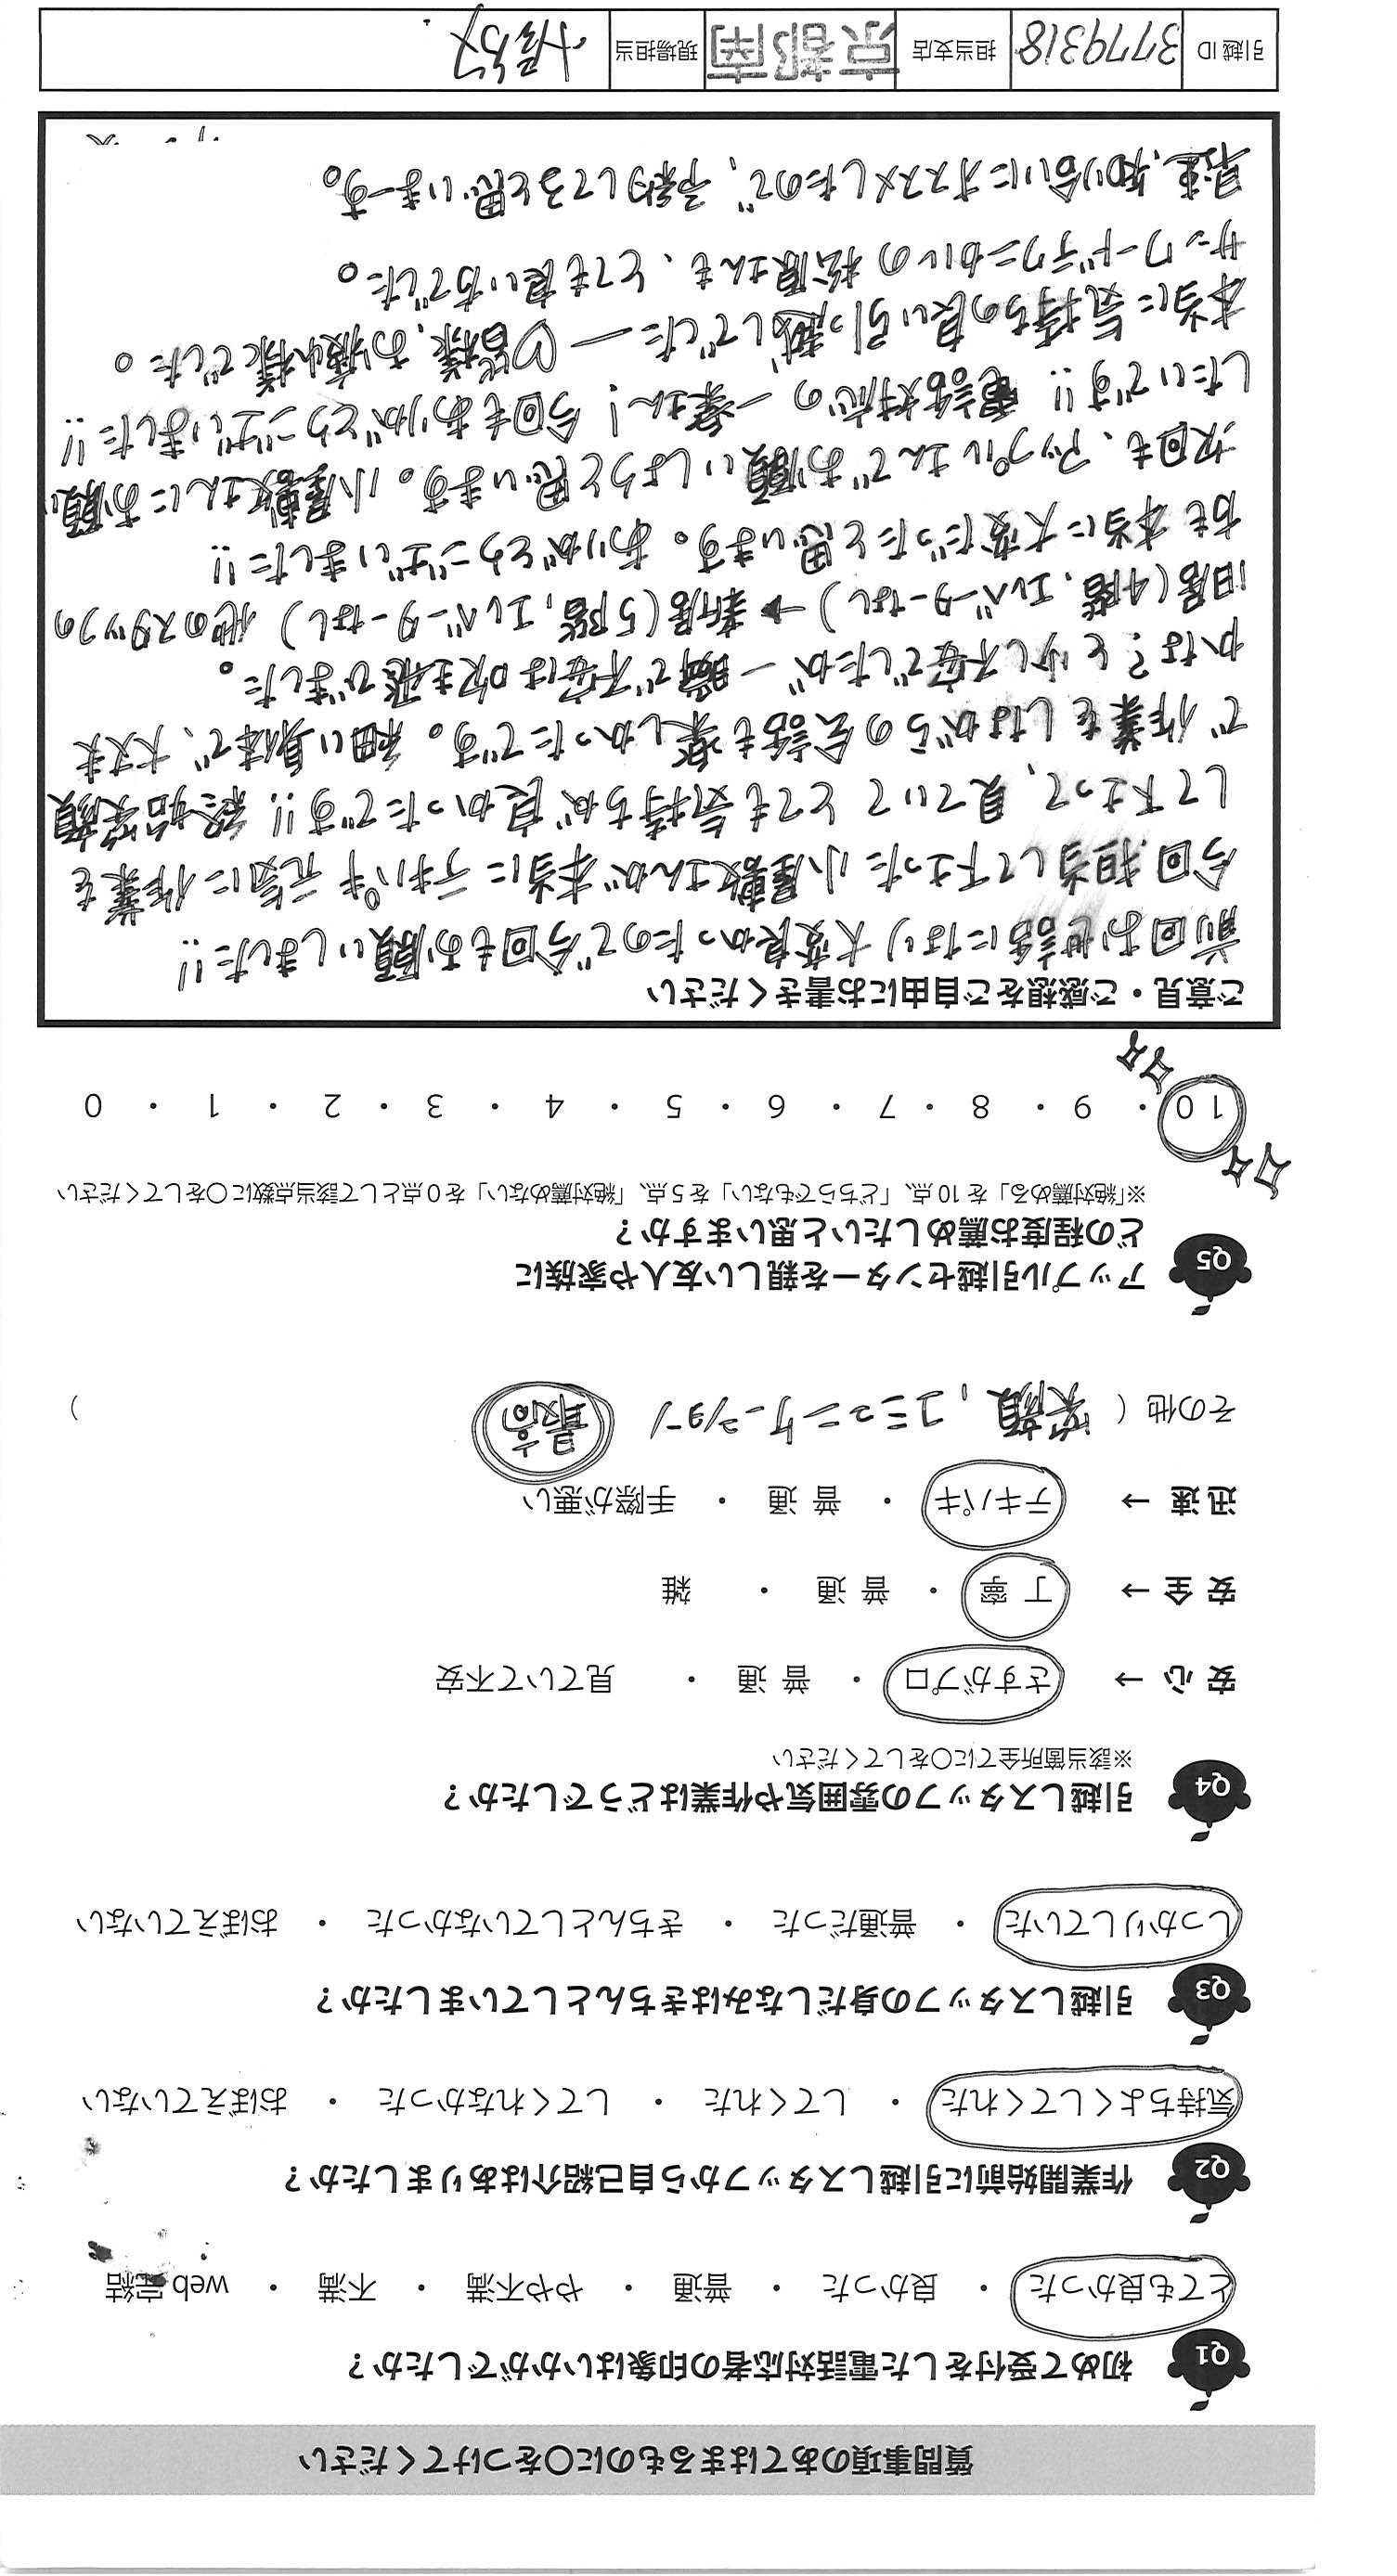 質問事項のあてはまるものに○をつけてください
Q1 初めて受付をした電話対応者の印象はいかがでしたか？
とても良かった ・ 良かった ・ 普通 ・ やや不満 ・ 不満 ・ web完結
Q2 作業開始前に引越しスタッフから自己紹介はありましたか？
気持ちよくしてくれた ・ してくれた ・ してくれなかった ・ おぼえていない
Q3 引越しスタッフの身だしなみはきちんとしていましたか？
しっかりしていた ・ 普通だった ・ きちんとしていなかった ・ おぼえていない
Q4 引越しスタッフの雰囲気や作業はどうでしたか？
※該当箇所全てに○をしてください
安心 → さすがプロ ・ 普通 ・ 見ていて不安
安全 → 丁寧 ・ 普通 ・ 雑
迅速 → テキパキ ・ 普通 ・ 手際が悪い
その他 ( 笑顔、コミュニケーション 最高 )
Q5 アップル引越センターを親しい友人や家族に
どの程度お薦めしたいと思いますか？
※「絶対薦める」を10点、「どちらでもない」を5点、「絶対薦めない」を0点として該当点数に○をしてください
10 ・ 9 ・ 8 ・ 7 ・ 6 ・ 5 ・ 4 ・ 3 ・ 2 ・ 1 ・ 0
ご意見・ご感想をご自由にお書きください
前回お世話になり大変良かったので今回もお願いしました!!
今回担当して下さった小屋敷さんが本当にテキパキ元気に作業を
して下さって、見ていてとても気持ちが良かったです!! 終始笑顔
で作業をしながらの会話も楽しかったです。細い身体で、大丈夫
かな？と少し不安でしたが一瞬で不安は吹き飛びました。
旧居(4階、エレベーターなし)→新居(5階、エレベーターなし) 他のスタッフの
方も本当に大変だったと思います。ありがとうございました!!
次回も、アップルさんでお願いしようと思います。小屋敷さんにお願い
したいです!! 電話対応の一葉さん！今回もありがとうございました!!
本当に気持ちの良い引っ越しでしたー♡皆様、お疲れ様でした。
サンワードテクニカルの松原さんも、とても良い方でした。
早速、知り合いにオススメしたので、予約してると思います。
引越ID 3779318 担当支店 京都南 現場担当